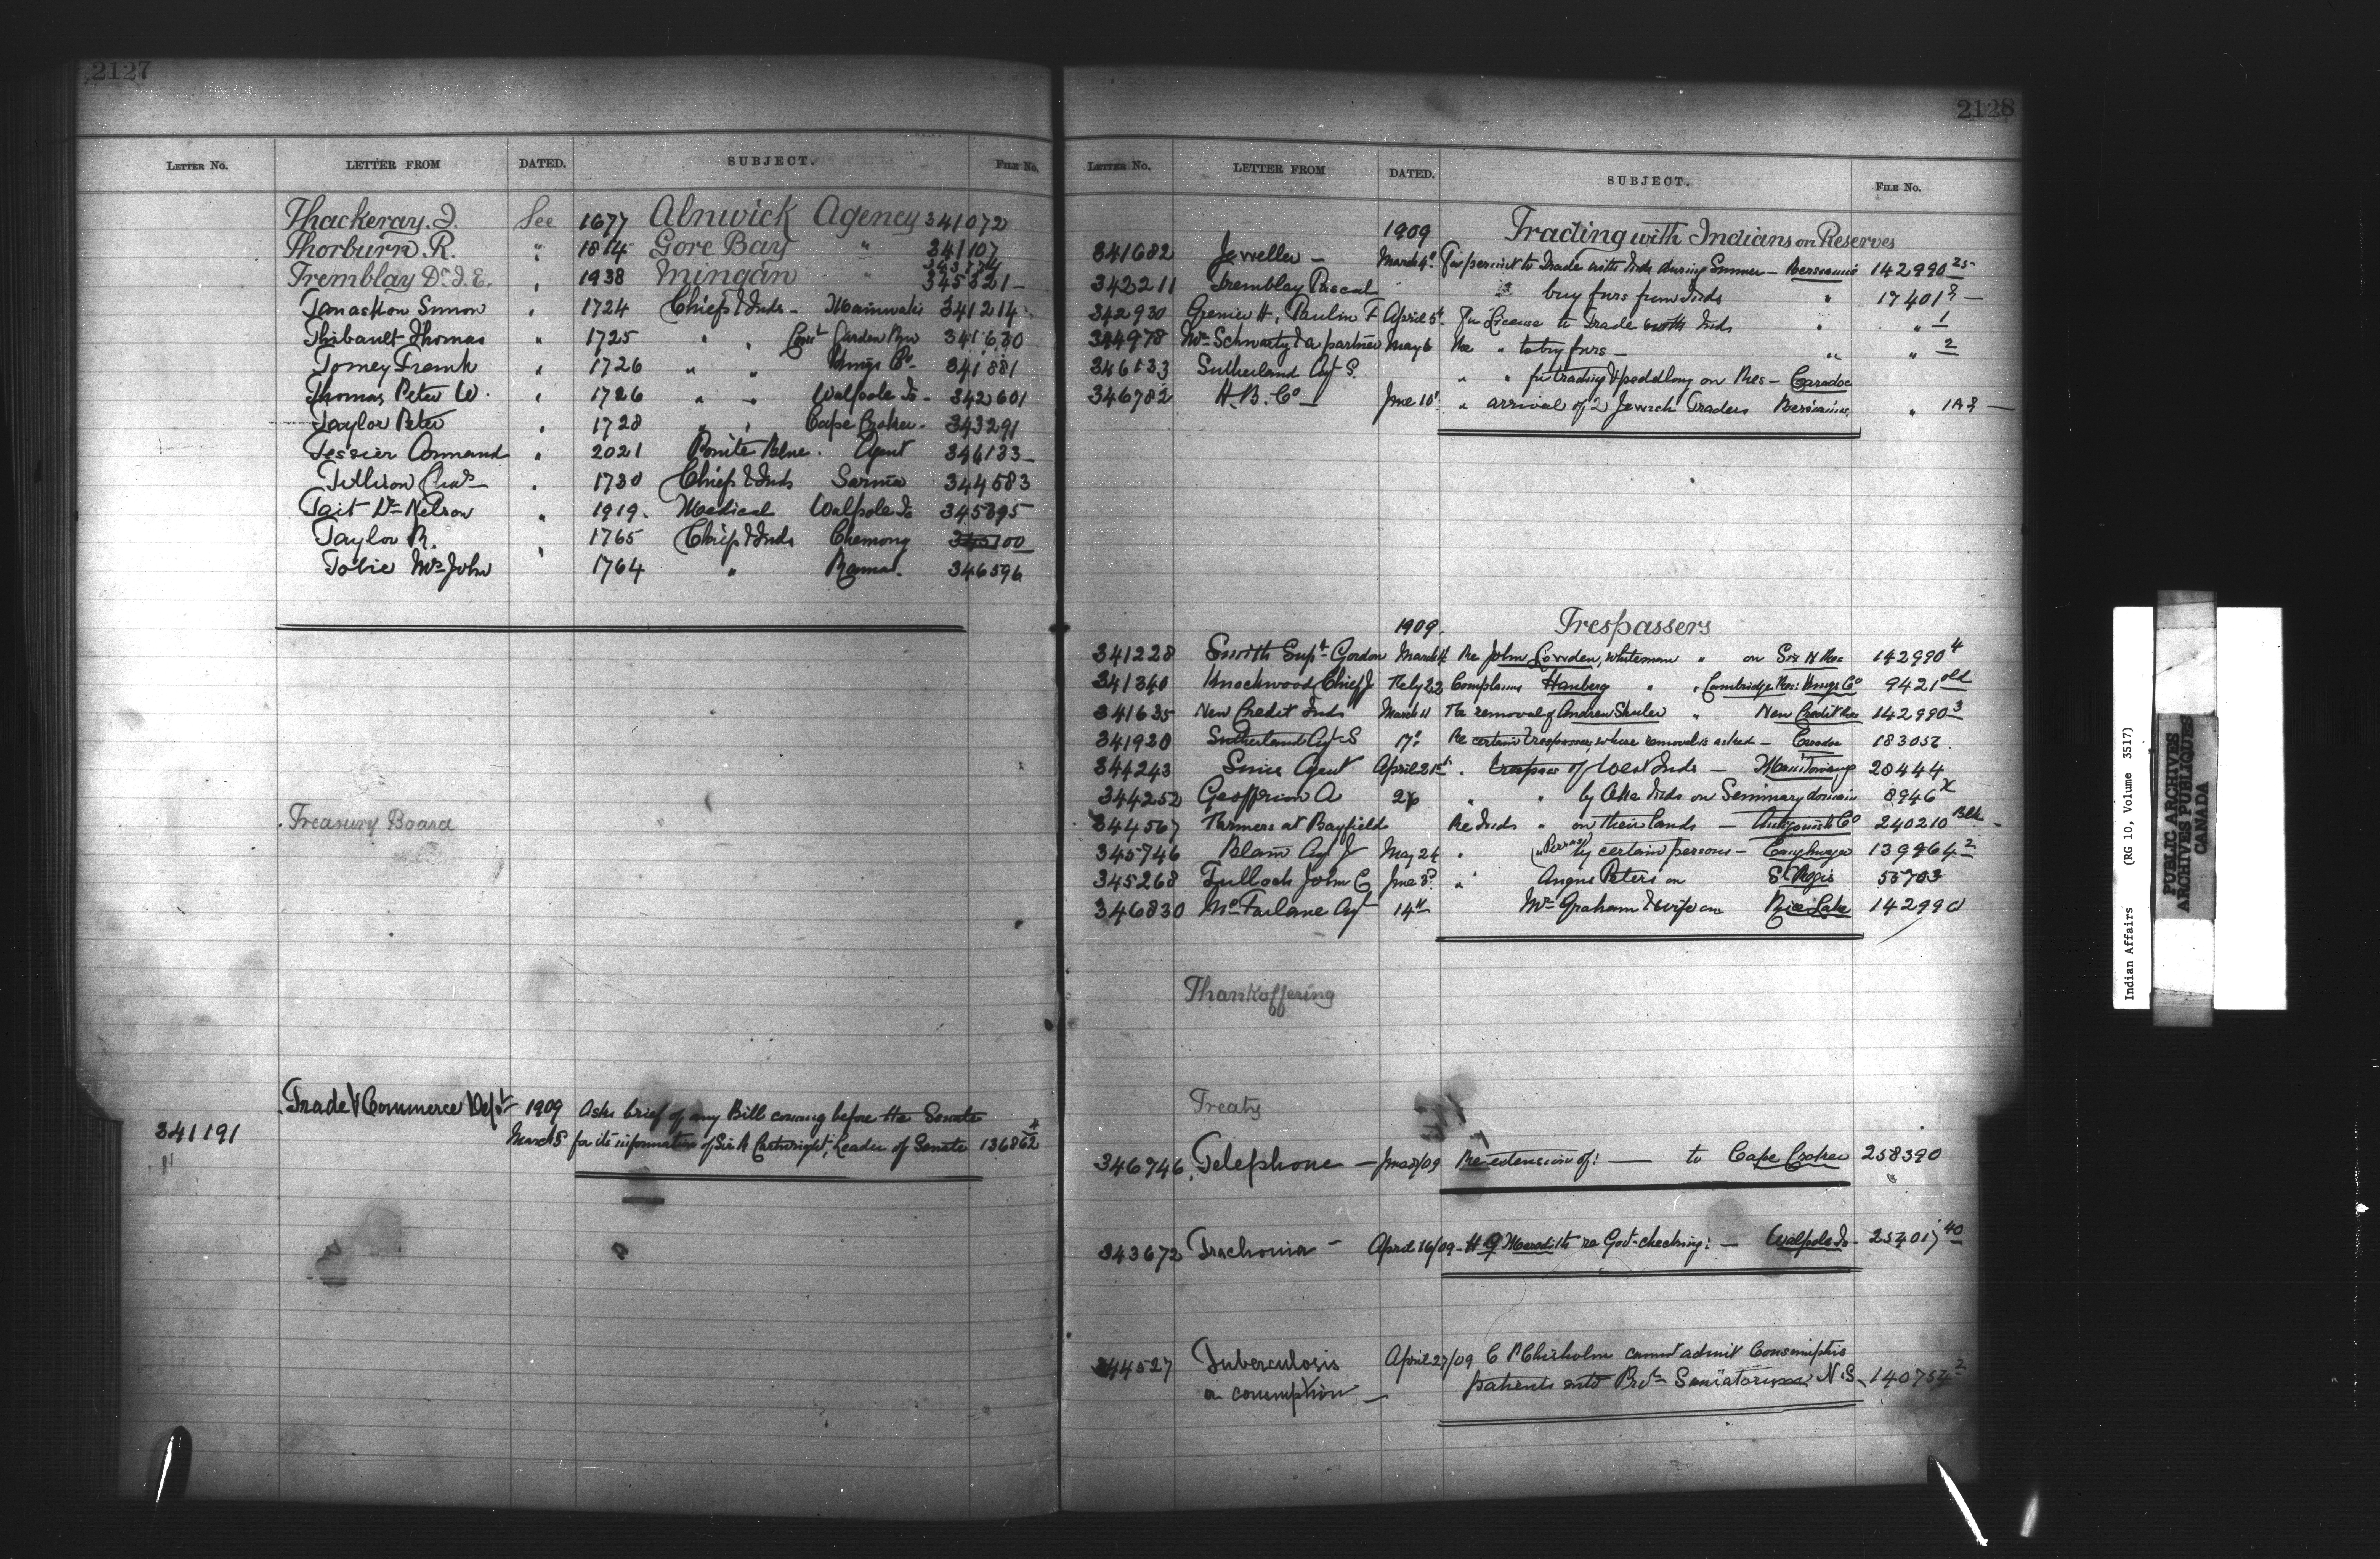 2127
LETTER NO. LETTER FROM DATED. SUBJECT. FILE NO.
Thackeray. J. See 1677 Alnwick Agency 341072
Thorburn. R. " 1814 Gore Bay " 341107
Tremblay Dr. J. E. " 1938 Mingan " 345321
Simon " 1724 Chiefs & Inds - 341214
Thibault Thomas " 1725 " " Garden Rivr 341630
Tomey Frank " 1726 " " Kings Co. 341881
Thomas Peter W. " 1726 " " Walpole Is - 342601
Taylor Peter " 1728 " " Cape Croker - 343291
Tessier " 2021 Pointe Bleue. Agent 346133
1730 Chiefs & Inds Sarnia 344583
Tait Dr Nelson " 1919. Medical Walpole Is 345395
Taylor R. " 1765 Chiefs & Inds Chemong
Tobie Mrs John 1764 " Rama. 346596
Treasury Board
Trade & Commerce Dept 1909 Asks brief of any Bill coming before the Senate
341191 March 5 for its information of Sir R Cartwright, Leader of Senate 136862 4
2128
LETTER NO. LETTER FROM DATED. SUBJECT. FILE NO.
1909 Trading with Indians on Reserves
341682 Jeweller - March 4" For permit to Trade with Inds during Summer - Bersimis 142990 25
342211 Tremblay Pascal buy furs from Inds "
342930 Grenier H, Paulin F April 5" For License to Trade with Inds " " 1
344978 & a partner May 6 Re " to buy furs - " " 2
346133 Sutherland Agt S. " " for trading & peddling on Res - Caradoc
346782 H. B. Co - June 10" " arrival of 2 Jewish Traders Bersimis "
1909. Trespassers
341228 Smith Supt. Gordon March Re John Lowden, whiteman " on Six N Res 142990 4
341340 Knockwood Chief J Feby 22 Complains Hanberg " " Cambridge Res: Kings Co 9421 old
341635 New Credit Inds March 11 Re removal of Andrew Shuler " New Credit Res 142990 3
341920 Sutherland Agt S 17" Re certain trespasses, whose removal is asked - Caradoc 183056.
344243 Sims Agent April 21st. " trespass of West Inds - 20444
344252 Geoffrion A " " by Oka Inds on Seminary domain 8946 X
344567 Farmers at Bayfield Re Inds " on their lands - Antigonish Co 240210 Blk
345746 Blain Agt J May 24 " by certain persons - Caughnawaga 139964 2
345268 Tulloch John C June 3d. " Angus Peters on St Regis 55703
346830 McFarlane Agt 14" Mr Graham & wife on Rice Lake 142990
Thankoffering
Treaty
346746 Telephone - Re extension of: - to Cape Croker 258390
343672 Trachoma - April 16/09 - H G Meredith re Govt checking: - Walpole Is -
344527 Tuberculosis April 27/09 C P Chisholm cannot admit Consumptive
or consumption - patients into N.S. 140754 2
Indian Affairs (RG 10, Volume 3517)
PUBLIC ARCHIVES
ARCHIVES PUBLIQUES
CANADA